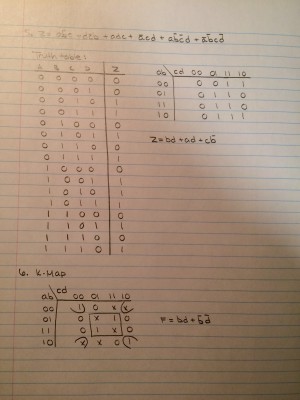 Truth table
a b c d z
0 0 0 0 0
0 0 0 1 0
0 0 1 0 1
0 0 1 1 1
0 1 0 0 0
0 1 0 1 1
0 1 1 0 0
0 1 1 1 1
1 0 0 0 0
1 0 0 1 1
1 0 1 0 1
1 0 1 1 1
1 1 0 0 0
1 1 0 1 1
1 1 1 0 0
1 1 1 0 1
ab cd 00 01 11 10
00 0 0 1 1
01 0 1 1 0
11 0 1 1 0
10 0 1 1 1
z=bd+ad+cb̄
6. K-Map
ab cd 00 01 11 10
00 1 0 x x
01 0 x 1 0
11 0 1 x 0
10 x x 0 1
F = bd + b̄d̄